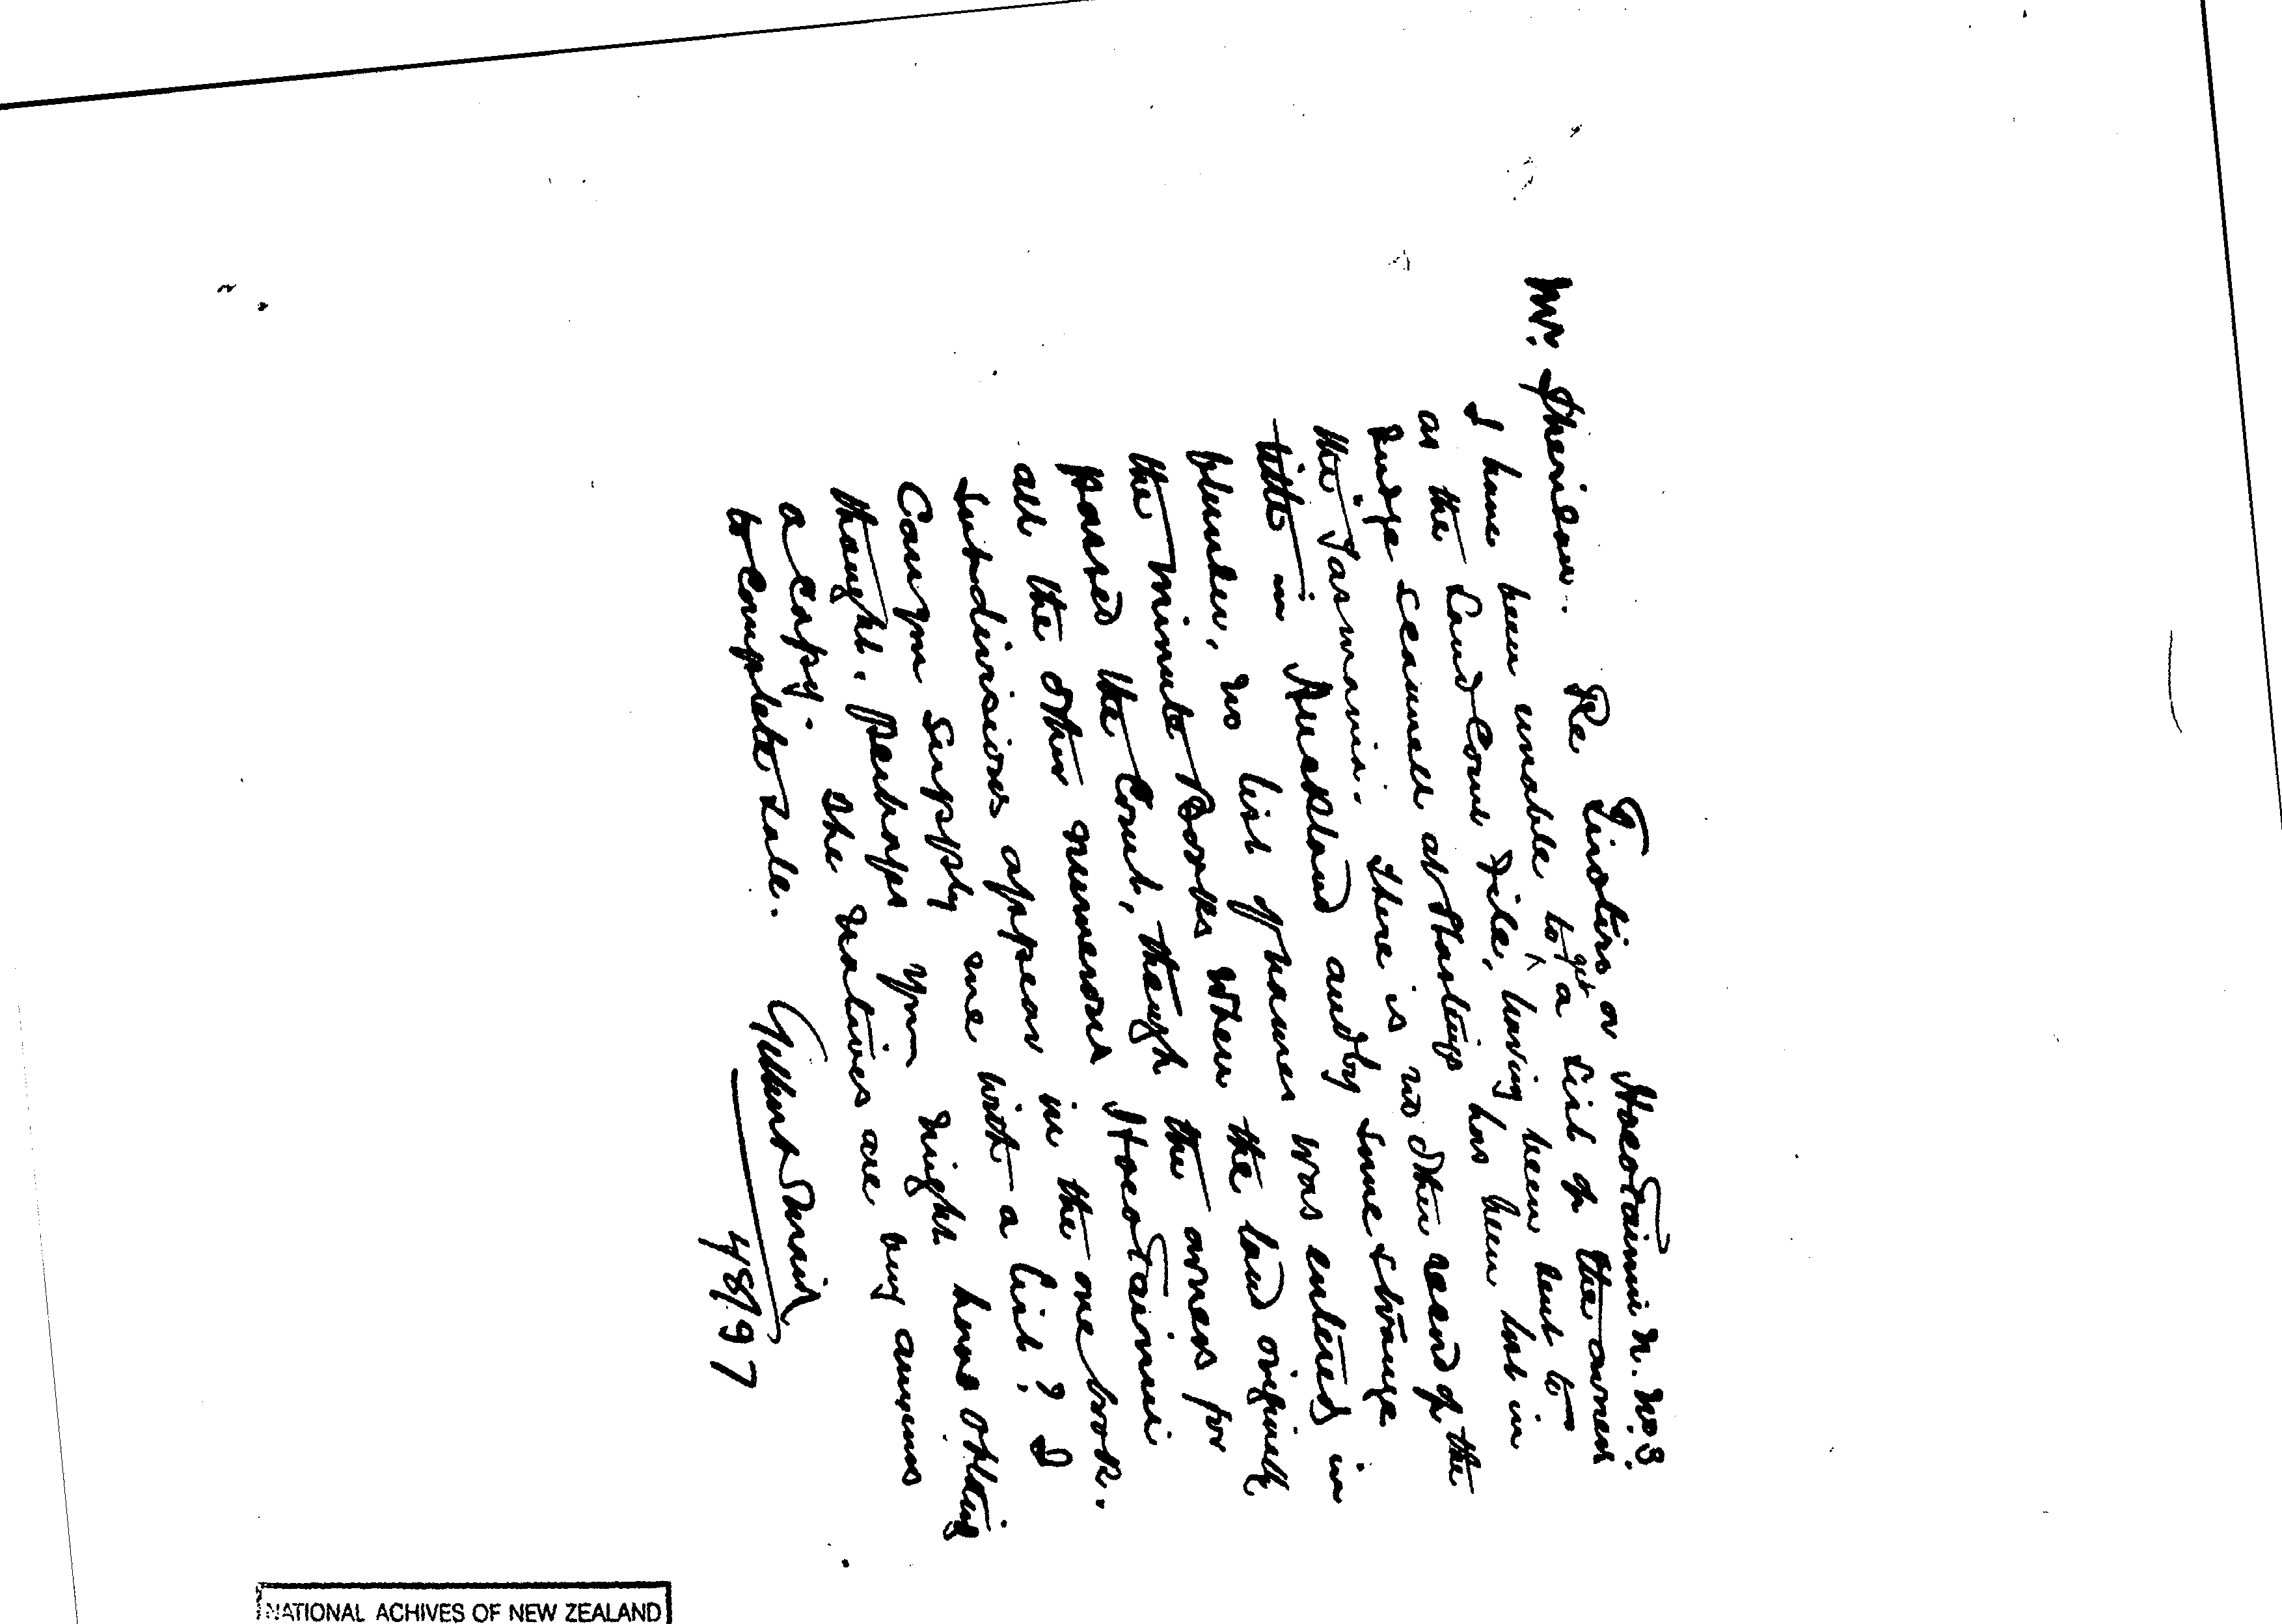 Mr. Sheridan. Re Tirotiro or Hoeotainui N. No 3.
I have been unable to get a list of the owners
as the Land Court File, having been sent to
Judge Scannell at Hastings has been lost in
the Tasmania. There is no other record of the
title in Auckland and by some strange
blunder, no list of names was entered in
the Minute Books when the land originally
passed the Court, though the owners for
all the other numerous Hoeotainui
Subdivisions appear in the one book.
Can you supply me with a list? I
thought perhaps you might have obtained
a copy. The natives are very anxious
to complete sale.
Gilbert Mair
4/8/97
NATIONAL ACHIVES OF NEW ZEALAND